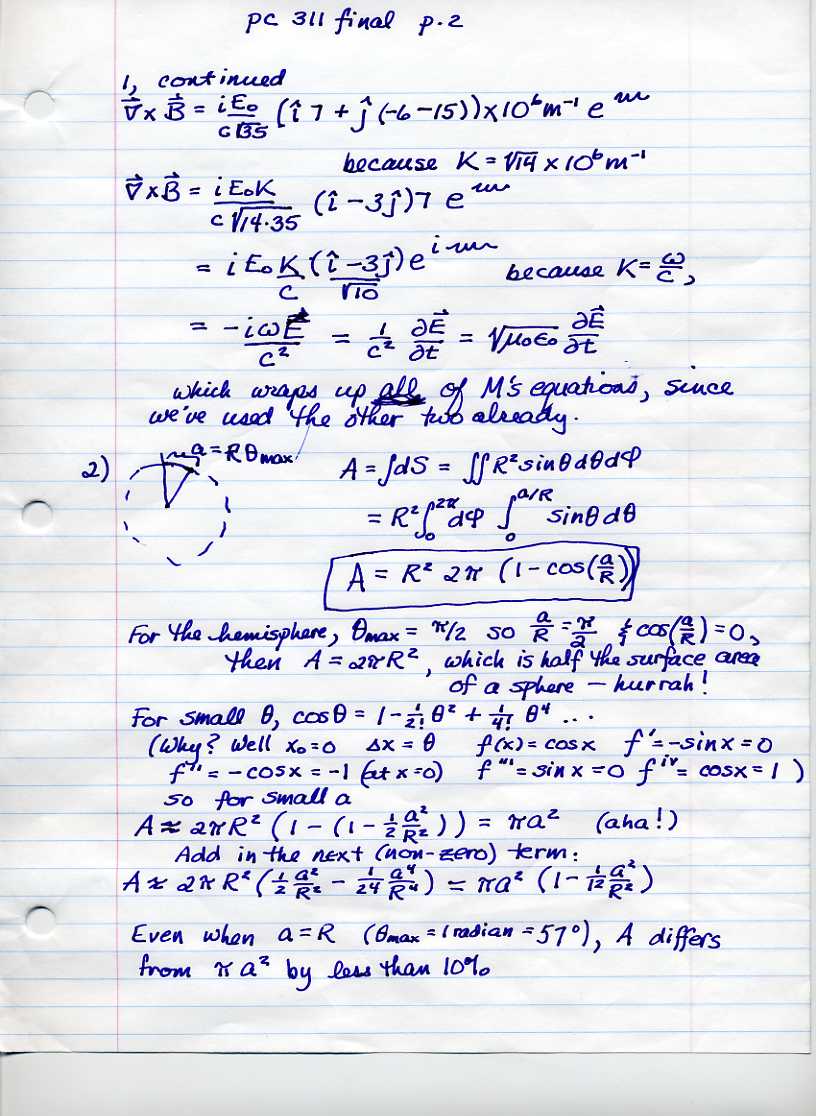 pc 311 final p.2
1, continued
∇⃗ x B⃗ = iE₀/(c√35) (î 7 + ĵ (-6-15)) x 10⁶ m⁻¹ e
because K = √14 x 10⁶ m⁻¹
∇⃗ x B⃗ = iE₀K/(c√(14·35)) (î - 3ĵ) 7 e
= iE₀K/c (î - 3ĵ)/√10 e^i because K = ω/c,
= -iωE⃗/c² = 1/c² ∂E⃗/∂t = √μ₀ε₀ ∂E⃗/∂t
which wraps up all of M's equations, since
we've used the other two already.
2) a = Rθmax
A = ∫dS = ∬ R² sinθ dθ dφ
= R² ∫₀^2π dφ ∫₀^a/R sinθ dθ
A = R² 2π (1 - cos(a/R))
For the hemisphere, θmax = π/2 so a/R = π/2 & cos(a/R) = 0,
then A = 2πR², which is half the surface area
of a sphere - hurrah!
For small θ, cosθ = 1 - 1/2! θ² + 1/4! θ⁴ ...
(Why? Well x₀ = 0 Δx = θ f(x) = cosx f' = -sinx = 0
f'' = -cosx = -1 (at x=0) f''' = sinx = 0 f^iv = cosx = 1 )
so for small a
A ≈ 2πR² (1 - (1 - 1/2 a²/R²)) = πa² (aha!)
Add in the next (non-zero) term:
A ≈ 2πR² (1/2 a²/R² - 1/24 a⁴/R⁴) = πa² (1 - 1/12 a²/R²)
Even when a = R (θmax = 1 radian = 57°), A differs
from πa² by less than 10%